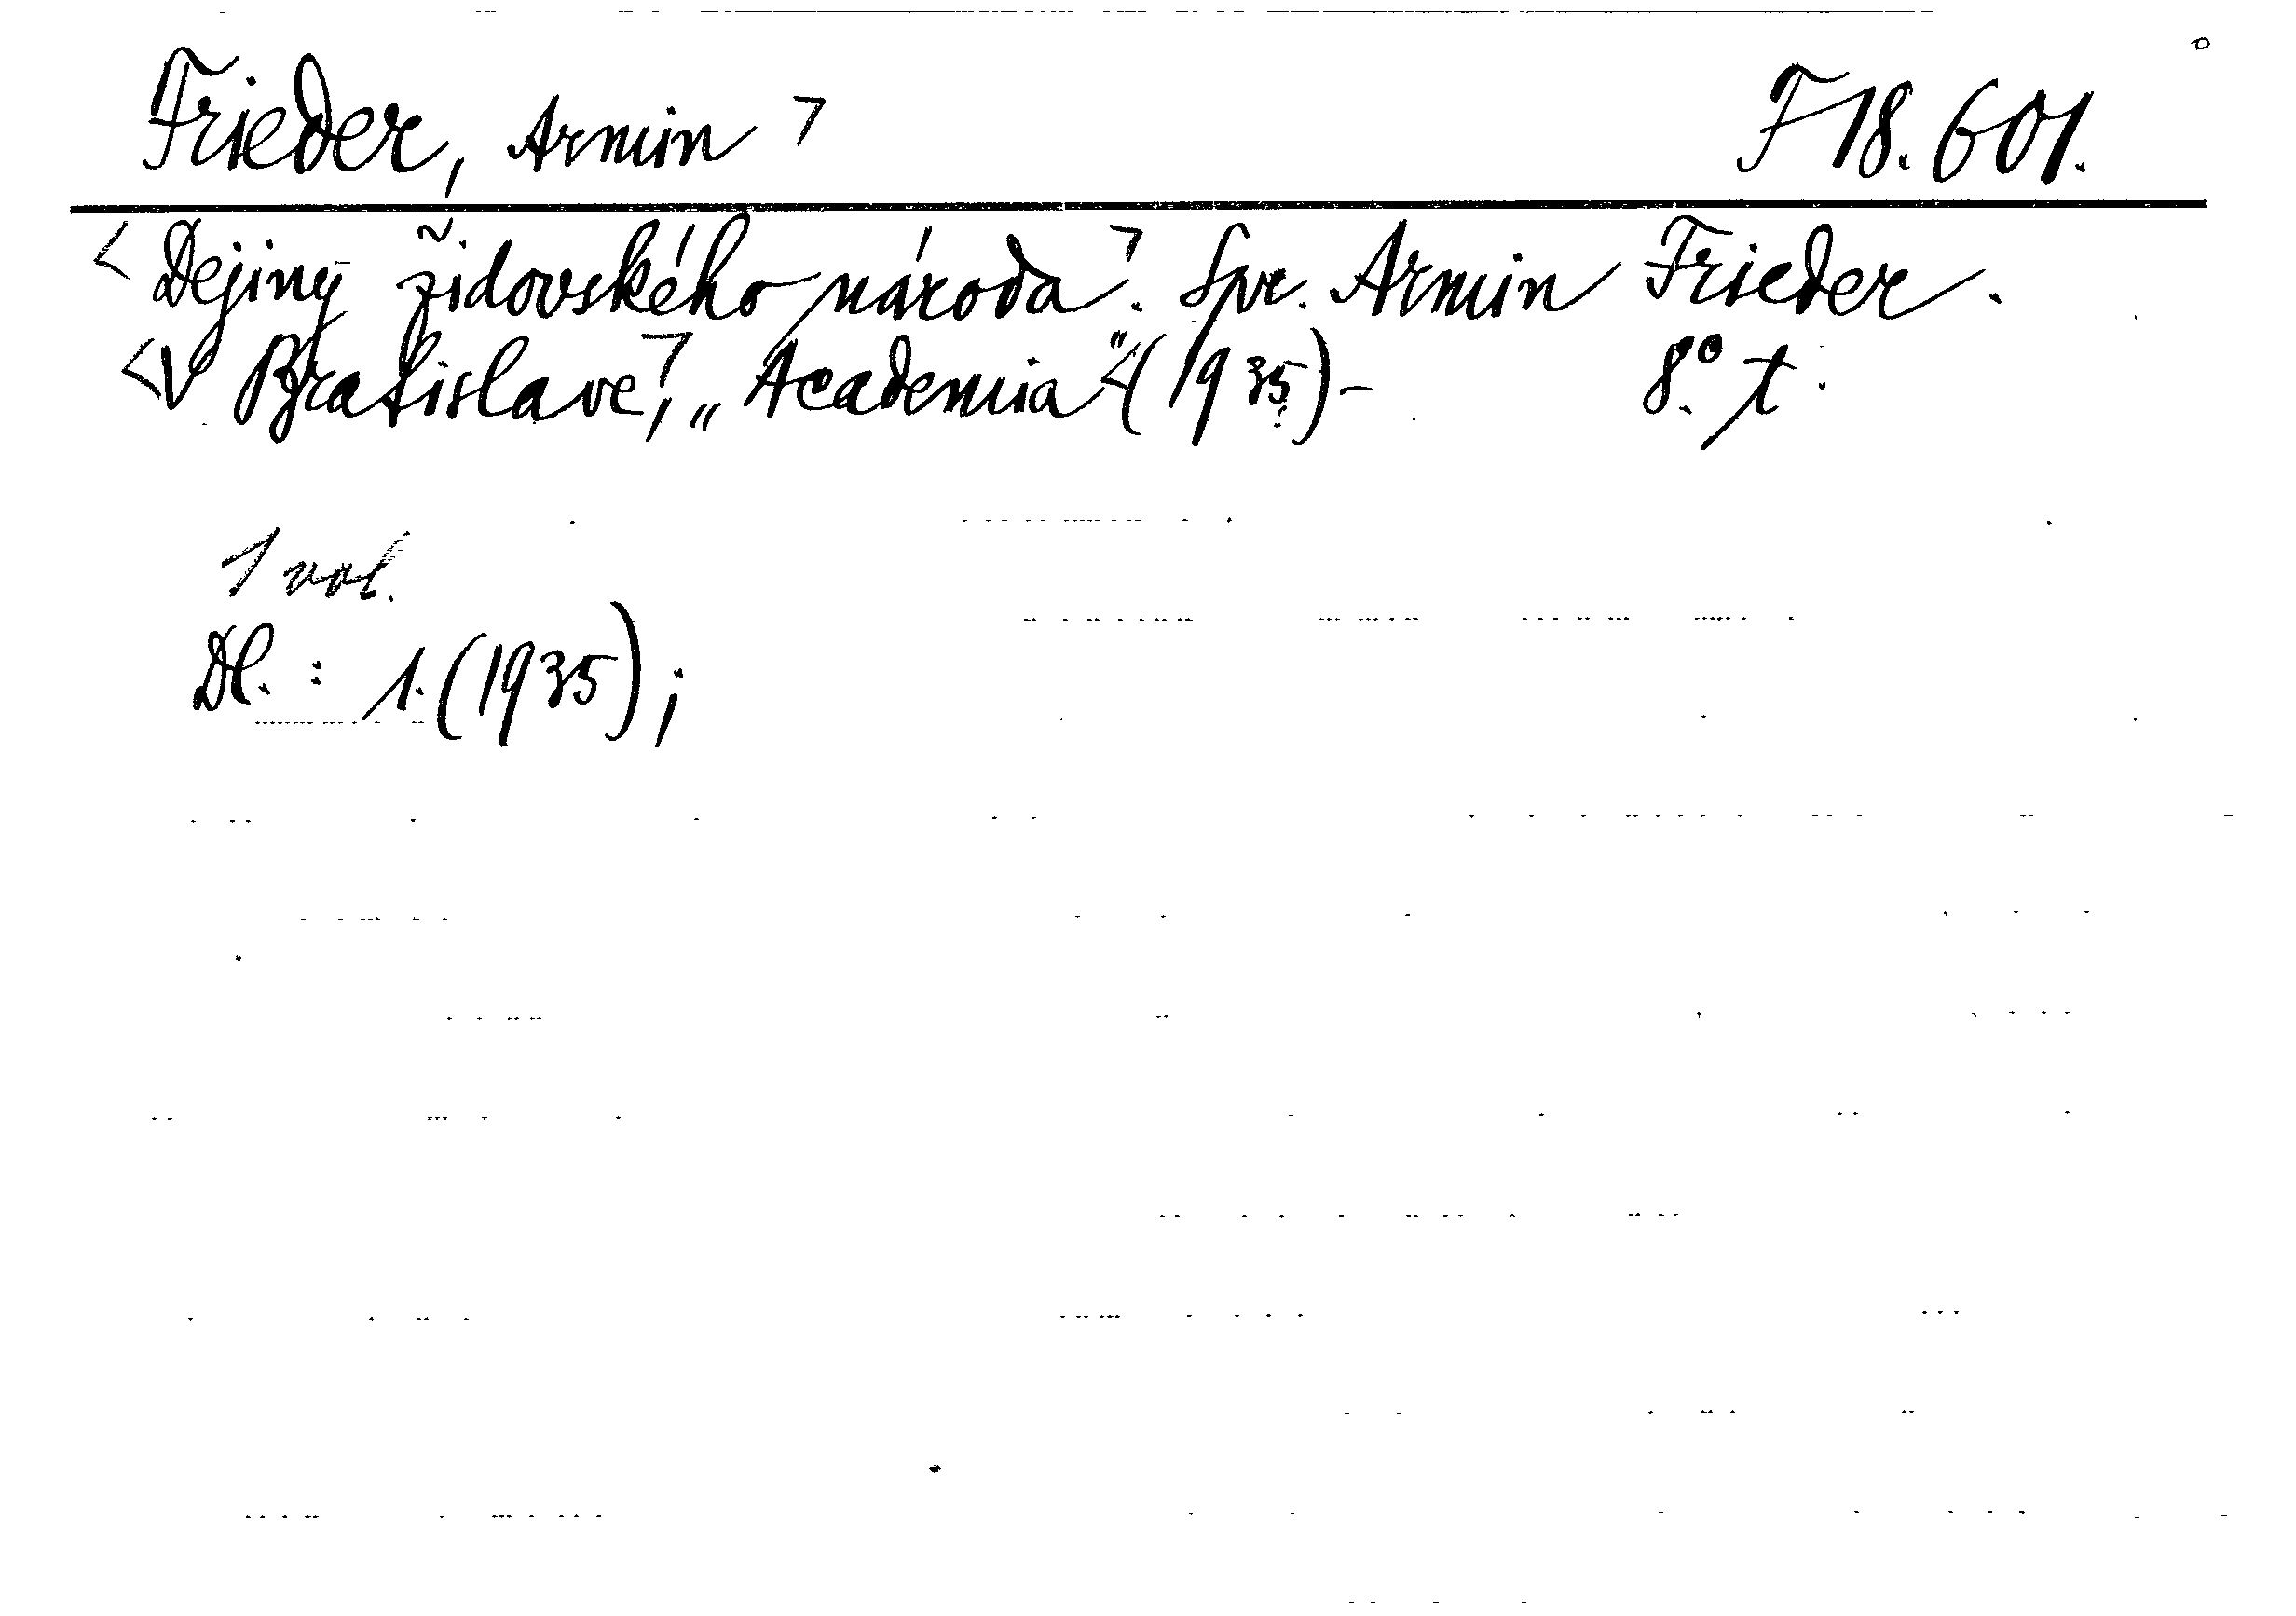 Frieder, Armin ⌝ F 18.601.
< Dejiny židovského národa⌝. Spr. Armin Frieder.
<V Bratislave,⌝ „Academia" (1935)- 8°. t.
1 vol.
Dl. : 1. (1935);